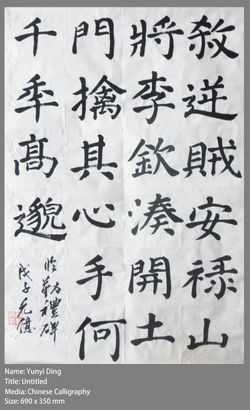 殺逆賊安禄山
將李欽湊開土
門擒其心手何
千年髙邈
臨勤禮碑
戊子
Name: Yunyi Ding
Title: Untitled
Media: Chinese Calligraphy
Size: 690 x 350 mm